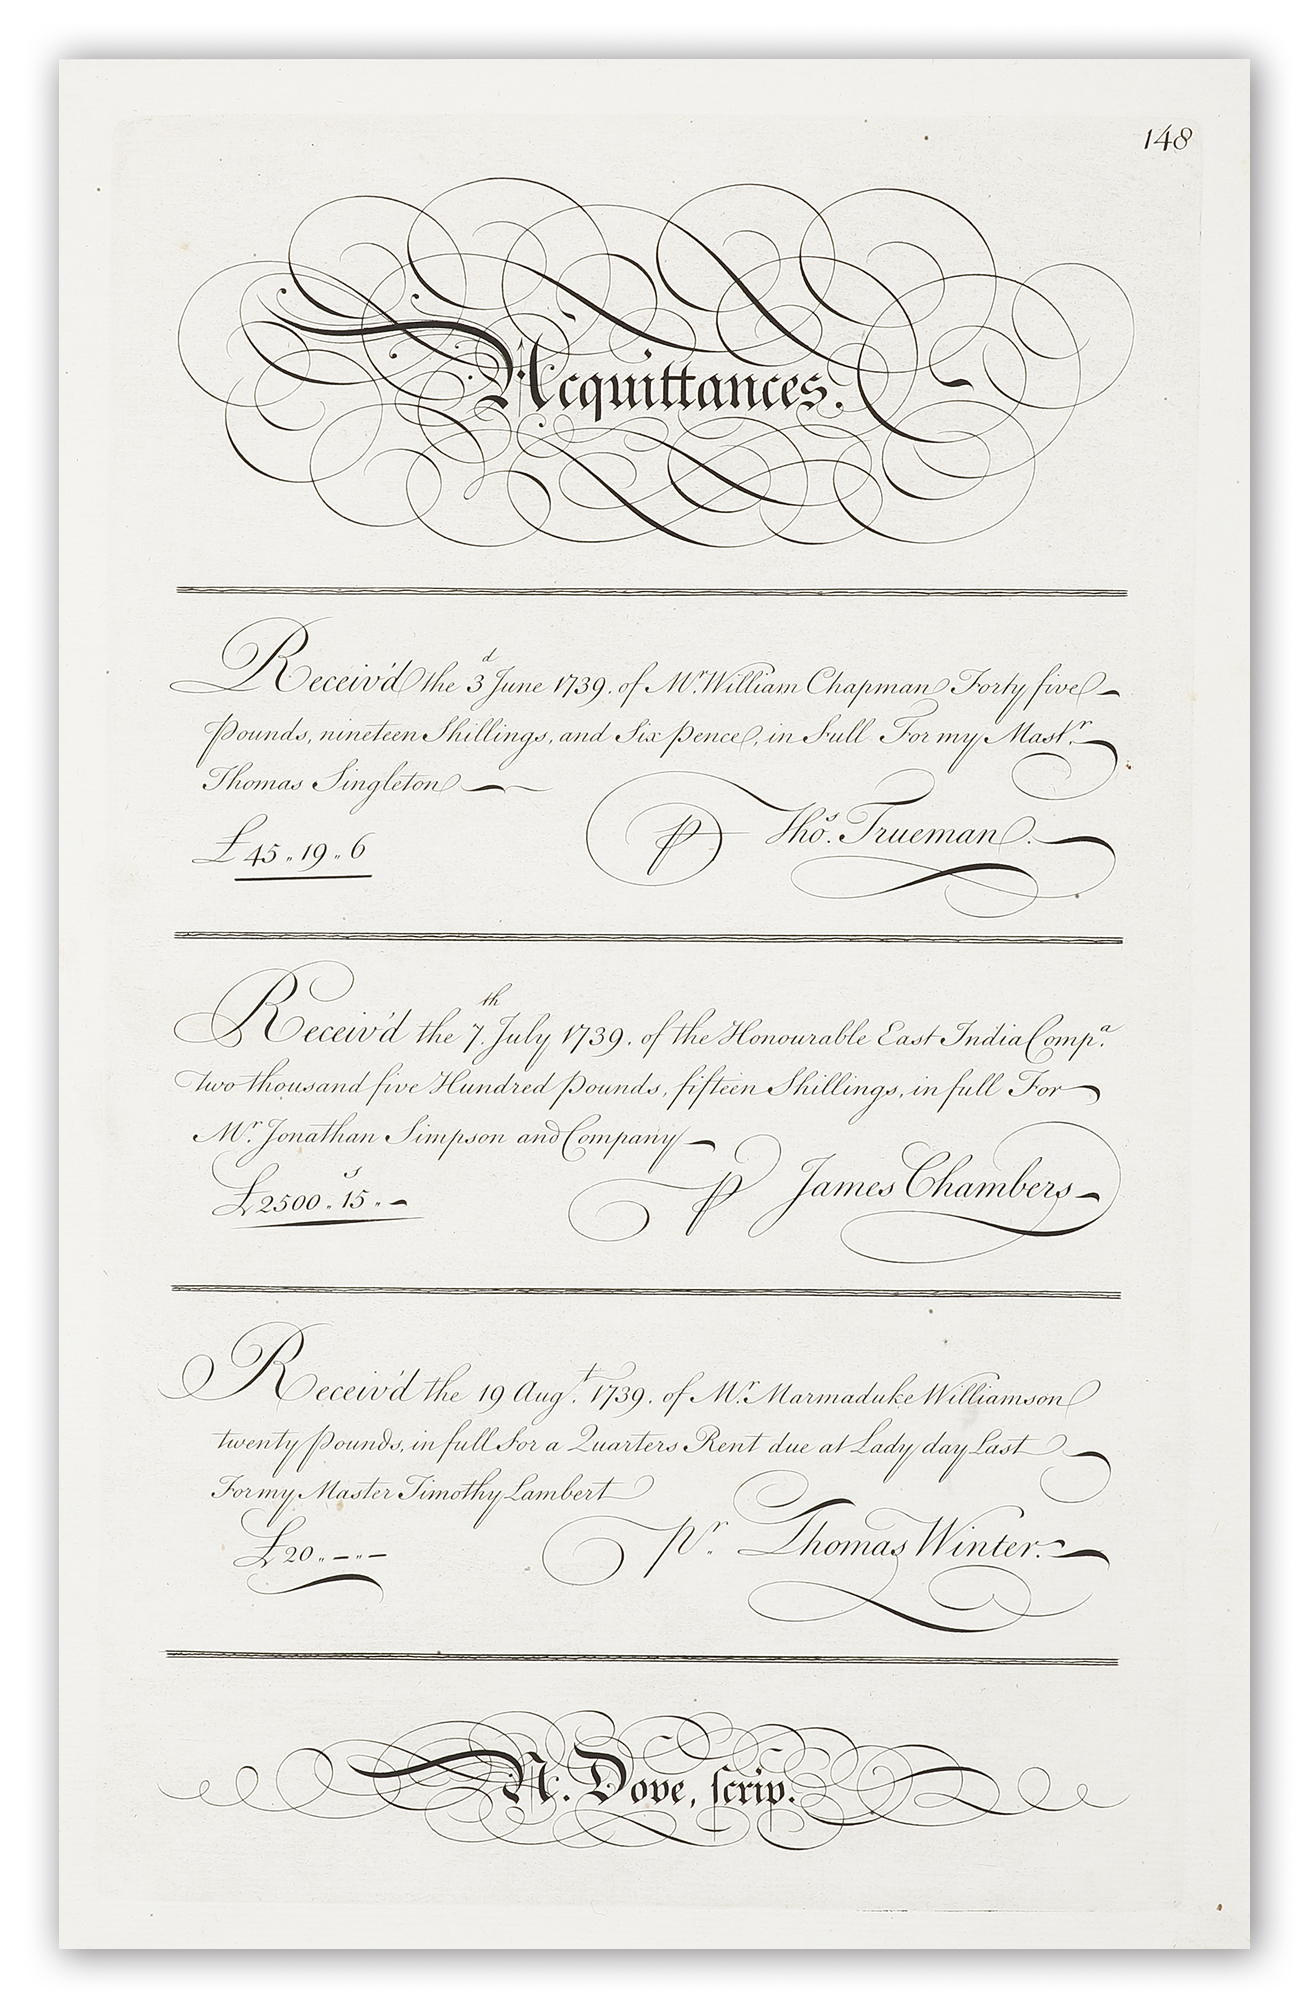 148
Acquittances.
Receiv'd the 3d June 1739. of Mr. William Chapman Forty five
Pounds, nineteen Shillings, and Six pence, in Full For my Mastr.
Thomas Singleton
£ 45 „ 19 „ 6 p Thos. Trueman.
Receiv'd the 7th. July 1739. of the Honourable East India Compa.
Two thousand five Hundred Pounds, fifteen Shillings, in full For
Mr. Jonathan Simpson and Company
£2500 „ 15s „ - p James Chambers
Receiv'd the 19 Augt. 1739. of Mr. Marmaduke Williamson
twenty Pounds, in full for a Quarters Rent due at Lady day Last
For my Master Timothy Lambert
£20 „ - „ - pr. Thomas Winter.
N. Dove, ſcrip.